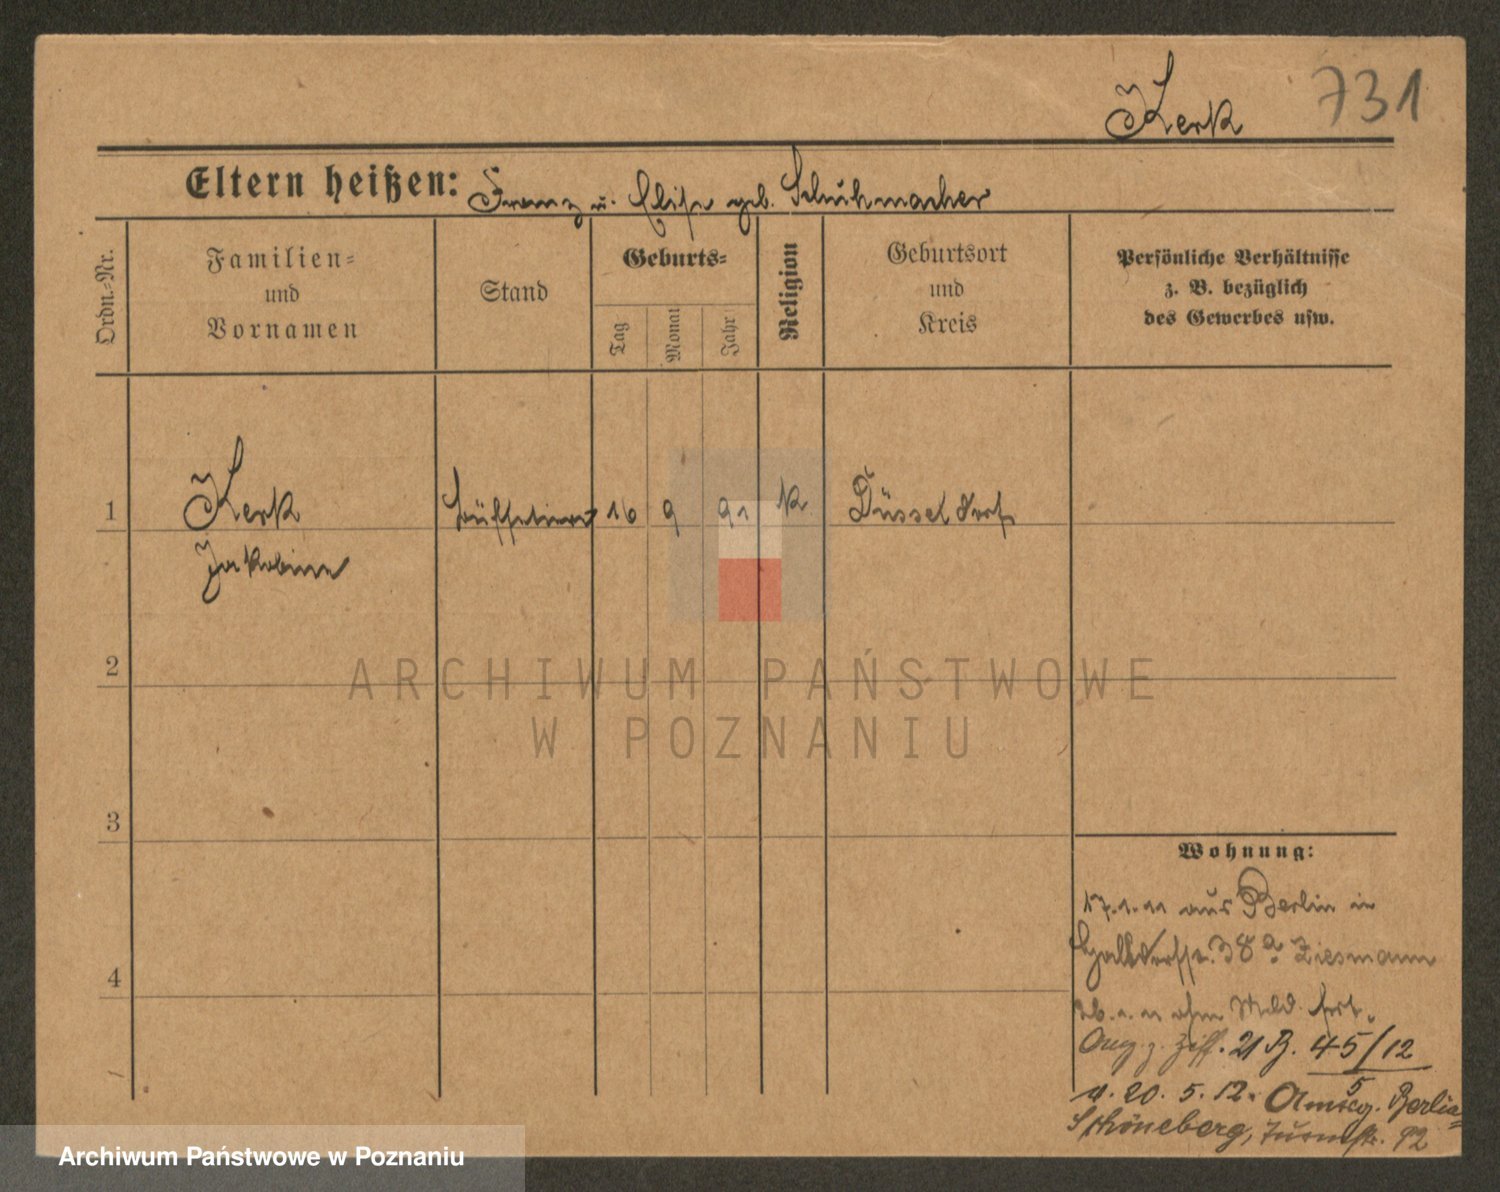 Kerk 731
Eltern heißen: Franz u. Elise geb. Schuhmacher
Ordn.-Nr.
Familien-
und
Vornamen
Stand
Geburts-
Tag
Monat
Jahr
Religion
Geburtsort
und
Kreis
Persönliche Verhältnisse
z. B. bezüglich
des Gewerbes usw.
1 Kerk 16 9 91 k Düsseldorf
Jakobine
2
3
4
Wohnung:
17.1.11 aus Berlin in
38a Ziesmann
ohne Meld. fort.
Ang. z. Ziff. 21 B. 45/12
5
v. 20. 5. 12. Berlin-
Schöneberg, 92
ARCHIWUM PAŃSTWOWE
W POZNANIU
Archiwum Państwowe w Poznaniu